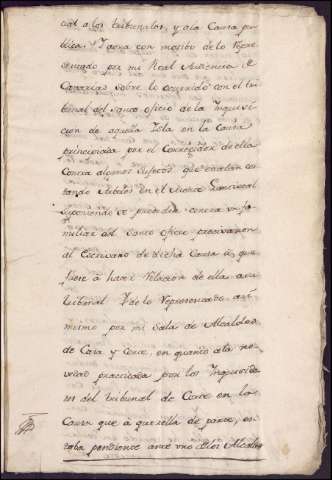 cial a los tribunales, y a la Causa pu
blica. Y aora con motibo de lo repre
sentado por mi Real Audiencia de
Canarias sobre lo ocurrido con el tri
bunal del santo oficio de la Inquisi
cion de aquella Isla en la Causa
principiada por el Corregidor de ella
Contra algunos sugetos que estaban cor
tando Arboles en el Monte
suponiendo se procedia contra un fa
miliar del santo oficio precisaron
al Escrivano de dicha Causa à que
fuere à hacer relacion de ella à un
Litoral Y de lo representado asi
mismo por mi Sala de Alcaldes
de Casa y Corte, en quanto à la no
vedad practicada por los Inquisido
res del tribunal de Corte en los
Causa que à querella de parte, es
taba pendiente ante uno de los Alcaldes